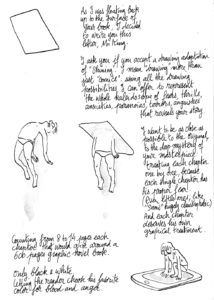 As I was floating back
up to the surface of
your book, I decided
to write you this
letter, Mr King.
I ask you if you accept a drawing adaptation
of "Shining". I mean "Drawing" more than
just "comics", using all the drawing
possibilities I can offer to represent
the whole kaleidoscope of fears, thrills,
anxieties, paranoias, terrors, anguishes
that reveals your story.
I want to be as close as
possible to the original,
to the deep mystery of
your masterpiece,
treating each chapter
one by one, because
each single chapter has
its proper soul.
And each chapter
deserves his own
graphical treatment.
Counting from 8 to 14 pages each
chapter that would give around a
600 pages graphic novel book.
Only black & white.
Letting the reader choose his favorite
color for blood and anger.